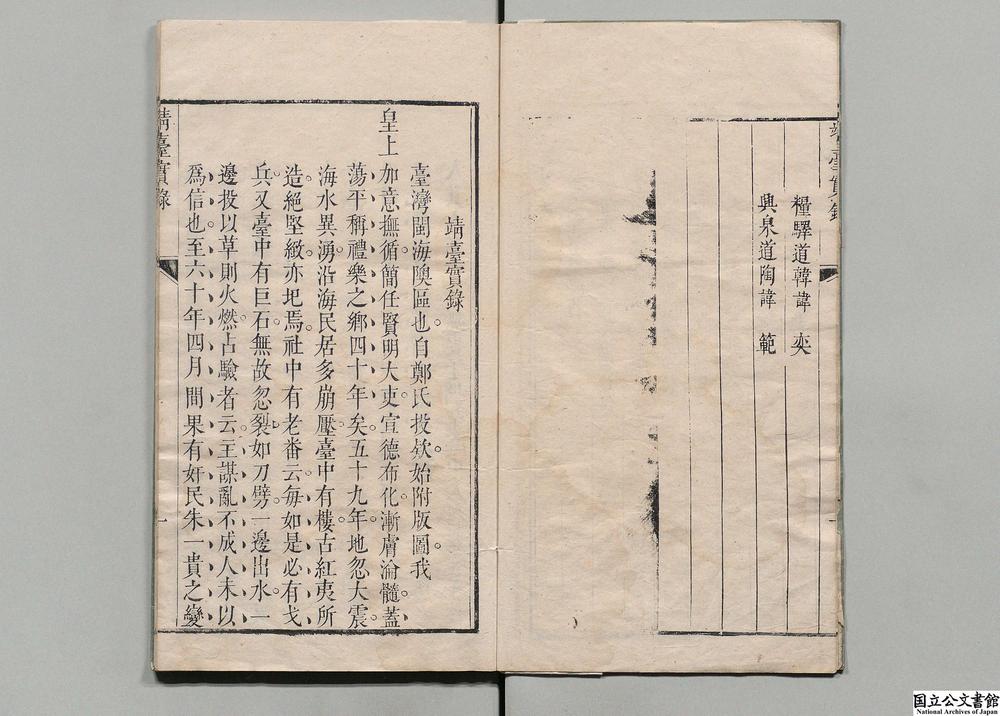 靖臺實錄
糧驛道韓諱 奕
興泉道陶諱 範
靖臺實錄
臺灣閩海隩區也自鄭氏投欸始附版圖我
皇上加意撫循簡任賢明大吏宣德布化漸膚淪髓蓋
蕩平稱禮樂之鄉四十年矣五十九年地忽大震
海水異湧沿海民居多崩壓臺中有樓古紅夷所
造絕堅緻亦圯焉社中有老番云每如是必有戈
兵又臺中有巨石無故忽裂如刀劈一邊出水一
邊投以草則火燃占驗者云主謀亂不成人未以
爲信也至六十年四月間果有奸民朱一貴之變
靖臺實錄
一
国立公文書館
National Archives of Japan